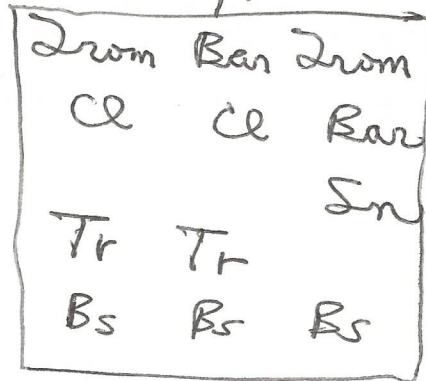 Trom Bar Trom
Cl Cl Bar
Sn
Tr Tr
Bs Bs Bs